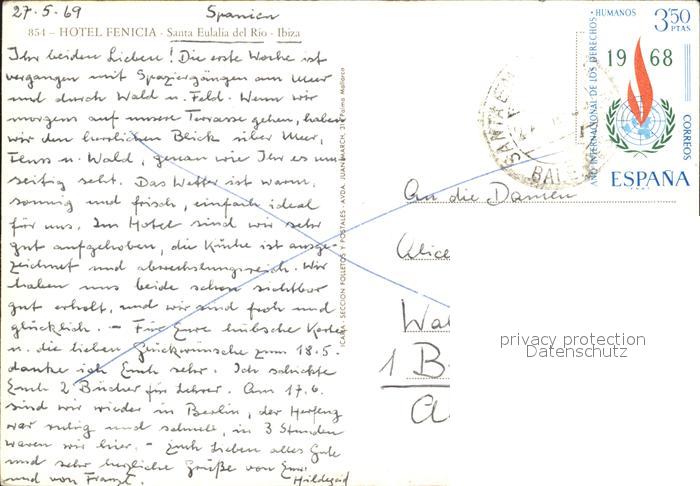 27.5.69 Spanien
854 – HOTEL FENICIA - Santa Eulalia del Río - Ibiza
Ihr beiden Lieben! Die erste Woche ist
vergangen mit Spaziergängen am Meer
und durch Wald u. Feld. Wenn wir
morgens auf unsere Terrasse gehen, haben
wir den herrlichen Blick über Meer,
Fluss u. Wald, genau wie Ihr es um-
seitig seht. Das Wetter ist warm,
sonnig und frisch, einfach ideal
für uns. Im Hotel sind wir sehr
gut aufgehoben, die Küche ist ausge-
zeichnet und abwechslungsreich. Wir
haben uns beide schon sichtbar
gut erholt, und wir sind froh und
glücklich. – Für Eure hübsche Karte
u. die lieben Glückwünsche zum 18.5.
danke ich Euch sehr. Ich schickte
Euch 2 Bücher für Lehrer. Am 17.6.
sind wir wieder in Berlin, der Herflug
war ruhig und schnell, in 3 Stunden
waren wir hier. – Euch Lieben alles Gute
und sehr herzliche Grüße von Eurer
Hildegard
und von Franzl.
ICARIA - SECCION FOLLETOS Y POSTALES - AVDA. JUAN MARCH, Palma Mallorca
AÑO INTERNACIONAL DE LOS DERECHOS HUMANOS
3'50
PTAS.
1968
CORREOS
ESPAÑA
SANTA
BALE
An die Damen
Alice
Wal
1 B
privacy protection
Datenschutz